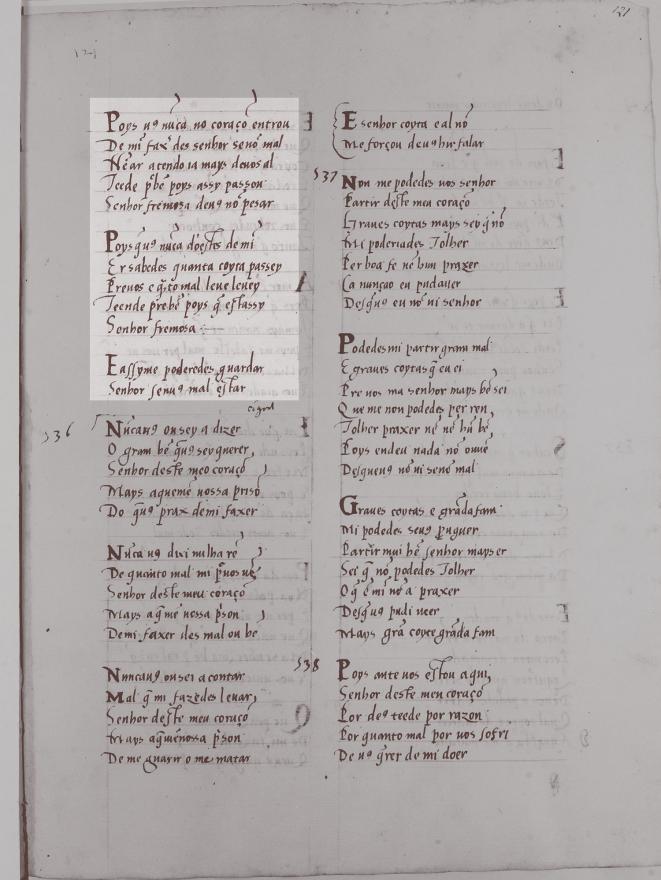 121
121
Poys uꝯ nūca no coraçō entrou
De mī fax' des senhor senō mal
Nē ar atendo ia mays deuos al
Teede p̄ bē poys assy passou
Senhor fremosa deuꝯ nō pesar
Poys q̄ uꝯ nūca doestes de mī
Er sabedes quanta coyta passey
Por uos e q̄to mal leue leuey
Teende prebē poys q̄ est assy
Senhor fremosa
E assy me poderedes guardar
Senhor senuꝯ mal estar
536
Nūca uꝯ ousey a dizer
O gram bē q̄uꝯ sey querer
Senhor deste meo coraçō
Mays aquemē uossa prisō
Do q̄uꝯ prax demi faxer
Nūca uꝯ dixi nulha rē
De quanto mal mi p̄ uos uē
Senhor deste meu coraçō
Mays aq̄mē uossa p'son
De mi faxer des mal ou bē
Nuncauꝯ ousei a contar
Mal q̄ mi fazēdes leuar
Senhor deste meu coraçō
Mays aq̄mēuossa p'son
De me guarir o me matar
E senhor coyta e al nō
Me forçou deuꝯ hir falar
537
Non me podedes uos senhor
Partir deste meu coraçō
Graues coytas mays sey q̄ nō
Mi poderiades Tolher
Per boa fe nē hun praxer
Ca nunçao eu pudauer
Desq̄uꝯ eu nō ui senhor
Podedes mi partir gram mal
E graues coytas q̄ eu ei
Por uos ma senhor mays bē sei
Que me non podedes per ren
Tolher praxer nē nē hū bē
Poys endeu nada nō ouue
Desqueuꝯ nō ui senō mal
Graues coytas e grādafam
Mi podedes seuꝯ p̄uguer
Partir mui bē senhor mays er
Sei q̄ nō podedes Tolher
O q̄ ē mi nō a praxer
Desq̄uꝯ pudi ueer
Mays grā coyta e grāda fam
538
Poys ante uos estou aqui
Senhor deste meu coraçō
Por deꝯ teede por razon
Por quanto mal por uos sofri
De uꝯ q̄rer de mi doer